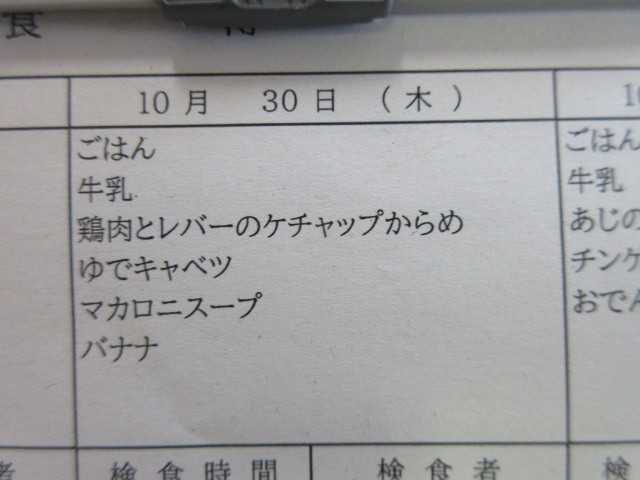 食
10月 30日 (木)
ごはん
牛乳
鶏肉とレバーのケチャップからめ
ゆでキャベツ
マカロニスープ
バナナ
10
ごはん
牛乳
あじの
チンゲ
おでん
者
検食時間
検食者
検